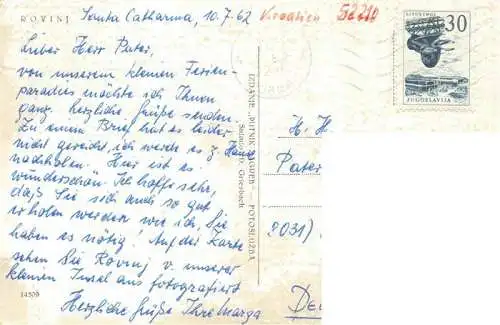 ROVINJ Santa Catharina, 10.7.62 Kroatien 52210
Lieber Herr Pater,
von unserem kleinen Ferien-
paradies möchte ich Ihnen
ganz herzliche Grüße senden.
Zu einem Brief hat es leider
nicht gereicht, ich werde es z. Hause
nachholen. Hier ist es
wunderschön. Ich hoffe sehr,
daß Sie sich auch so gut
erholen werden wie ich, Sie
haben es nötig! Auf der Karte
sehen Sie Rovinj v. unserer
kleinen Insel aus fotografiert
Herzliche Grüße Ihre Marga
14509
IZDANJE „PUTNIK ZAGREB“ - FOTOSLUŽBA
JUGOSLAVIJA
30
H. H.
Pater
(2031)